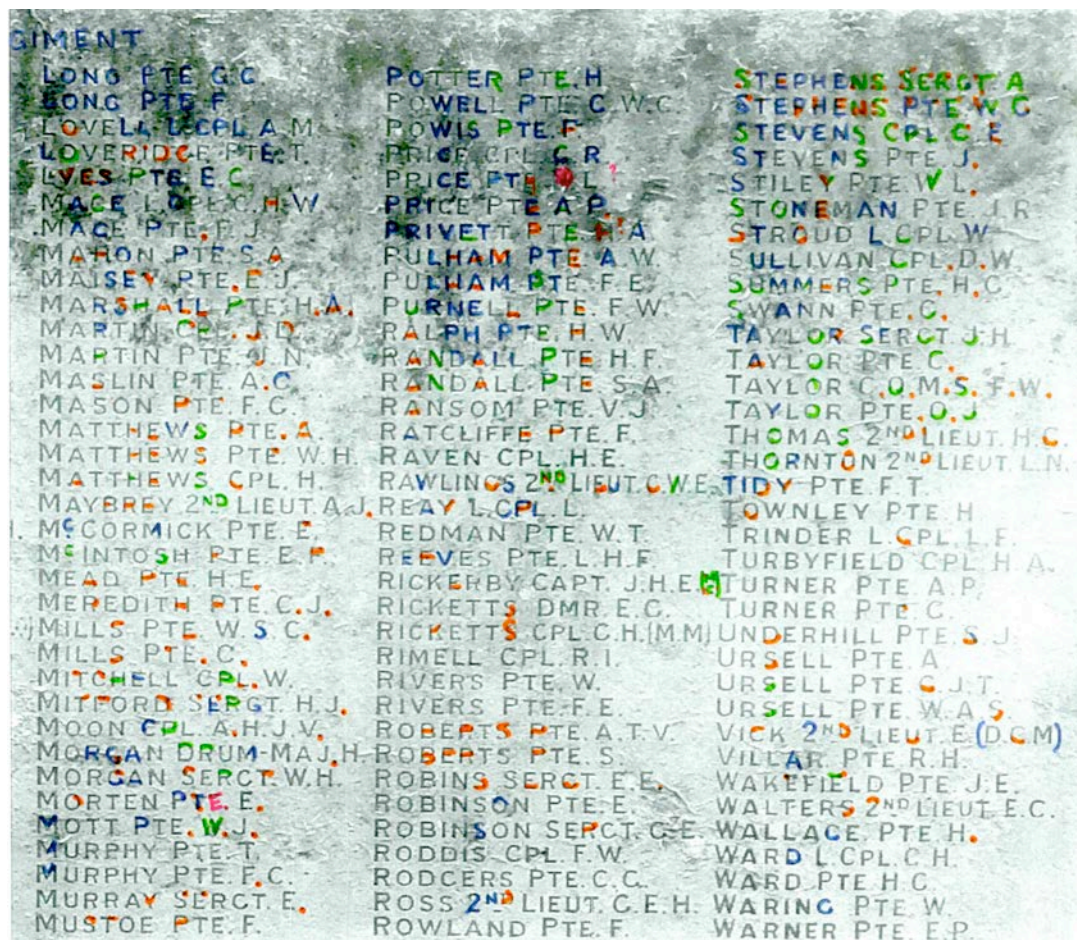 GIMENT
LONG PTE G.C.
LONG PTE F.
LOVELL L.CPL.A.M
LOVERIDGE PTE.T.
LYES PTE.E.C.
MACE L.CPL.C.H.W
MACE PTE.F.J.
MAHON PTE.S.A.
MAISEY PTE.E.J.
MARSHALL PTE.H.A.
MARTIN CPL.J.D.
MARTIN PTE.J.N.
MASLIN PTE.A.C.
MASON PTE.F.C.
MATTHEWS PTE.A.
MATTHEWS PTE.W.H.
MATTHEWS CPL.H.
MAYBREY 2ND LIEUT.A.J.
MCCORMICK PTE.E.
MCINTOSH PTE.E.F.
MEAD PTE.H.E.
MEREDITH PTE.C.J.
MILLS PTE.W.S.C.
MILLS PTE.C.
MITCHELL CPL.W.
MITFORD SERGT.H.J.
MOON CPL.A.H.J.V.
MORGAN DRUM-MAJ.H.
MORGAN SERGT.W.H.
MORTEN PTE.E.
MOTT PTE.W.J.
MURPHY PTE.T.
MURPHY PTE.F.C.
MURRAY SERGT.E.
MUSTOE PTE.F.
POTTER PTE.H
POWELL PTE.C.W.C.
POWIS PTE.F.
PRICE CPL.G.R.
PRICE PTE L
PRICE PTE A.P.
PRIVETT PTE.H.A
PULHAM PTE.A.W.
PULHAM PTE.F.E.
PURNELL PTE.F.W.
RALPH PTE.H.W.
RANDALL PTE H.F.
RANDALL PTE S.A.
RANSOM PTE.V.J.
RATCLIFFE PTE.F.
RAVEN CPL.H.E.
RAWLINGS 2ND LIEUT.G.W.E.
REAY L.CPL.L.
REDMAN PTE.W.T.
REEVES PTE.L.H.F.
RICKERBY CAPT. J.H.E.
RICKETTS DMR.E.C.
RICKETTS CPL.C.H.(M.M)
RIMELL CPL.R.I.
RIVERS PTE.W.
RIVERS PTE.F.E.
ROBERTS PTE.A.T.V.
ROBERTS PTE.S.
ROBINS SERGT.E.E.
ROBINSON PTE.E.
ROBINSON SERGT.G.E.
RODDIS CPL.F.W.
RODGERS PTE.C.C.
ROSS 2ND LIEUT.G.E.H.
ROWLAND PTE.F.
STEPHENS SERGT A
STEPHENS PTE.W.G
STEVENS CPL.C.E
STEVENS PTE.J.
STILEY PTE.W.L.
STONEMAN PTE.J.R
STROUD L.CPL.W.
SULLIVAN CPL.D.W.
SUMMERS PTE.H.C.
SWANN PTE.C.
TAYLOR SERGT.J.H
TAYLOR PTE C.
TAYLOR C.Q.M.S. F.W.
TAYLOR PTE.O.J
THOMAS 2ND LIEUT.H.C.
THORNTON 2ND LIEUT.L.N.
TIDY PTE.F.T.
TOWNLEY PTE.H
TRINDER L.CPL.L.F.
TURBYFIELD CPL.H.A.
TURNER PTE A.P.
TURNER PTE.C.
UNDERHILL PTE.S.J.
URSELL PTE.A
URSELL PTE C.J.T.
URSELL PTE W.A.S.
VICK 2ND LIEUT.E.(D.C.M)
VILLAR PTE.R.H.
WAKEFIELD PTE.J.E.
WALTERS 2ND LIEUT.E.C.
WALLACE PTE.H.
WARD L.CPL.C.H.
WARD PTE H.C.
WARING PTE.W.
WARNER PTE.E.P.